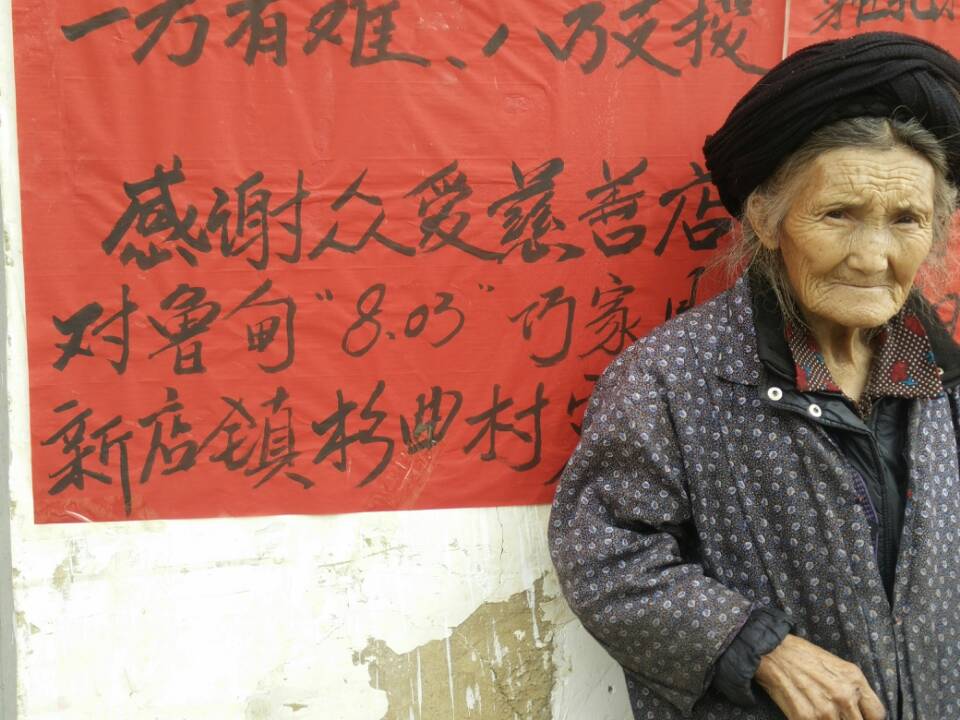 一方有难、八方支援
感谢众爱慈善店
对鲁甸“8.03”巧家
新店镇杉曲村